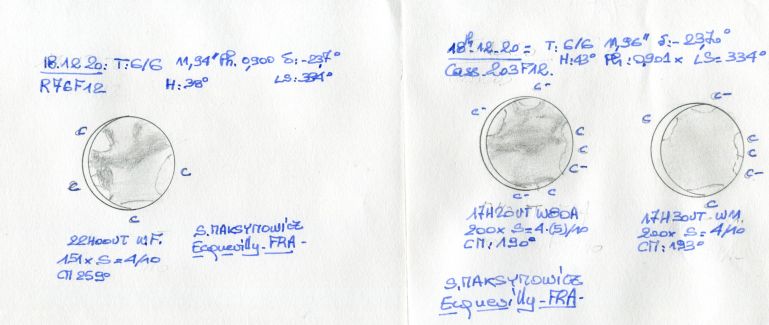 18.12.20: T:6/6 11,94" Ph. 0,900 δ:-23,7°
R76F12 H:38° LS:334°
C
C
C
C
22H00UT W.F.
151x S=4/10
CM 259°
S.MAKSYMOWICZ
Ecquevilly-FRA-
18.12.20= T:6/6 11,96" δ:-23,70°
Cass.203F12. H:43° Ph:0,901x LS=334°
C-
C-
C
C
C
C-
C-
C-
17H20UT W80A
200x S=4.(5)/10
CM:190°
C-
C
C
C
C-
C
17H30UT W11.
200x S=4/10
CM:193°
S.MAKSYMOWICZ
Ecquevilly-FRA-